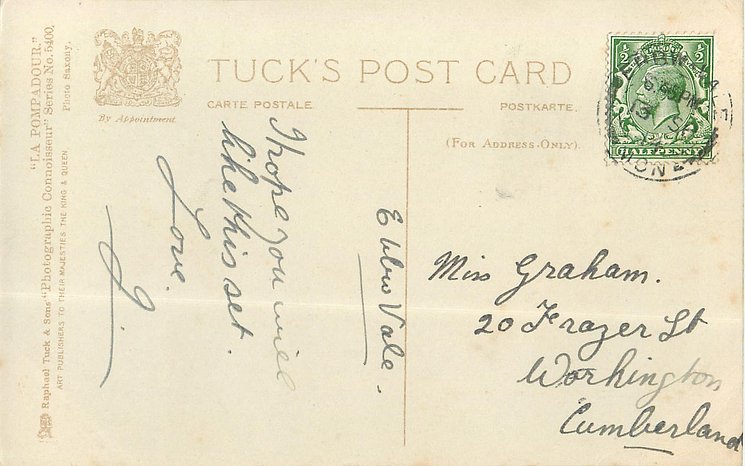 TUCK'S POST CARD
CARTE POSTALE.
POSTKARTE.
(FOR ADDRESS ONLY.)
By Appointment.
"LA POMPADOUR."
"Photographic Connoisseur" Series No. 5400.
Photo Saxony.
Raphael Tuck & Sons'
ART PUBLISHERS TO THEIR MAJESTIES THE KING & QUEEN.
½ ½
HALFPENNY
I hope you will
like this set.
Love.
J.
Ebbw Vale.
Miss Graham.
20 Frazer St
Workington
Cumberland